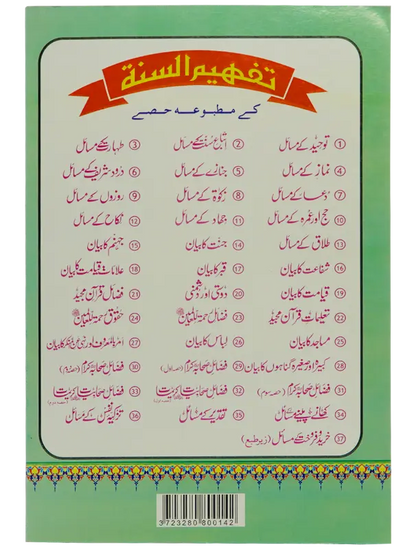 تفہیم السنۃ
کے مطبوعہ حصے
① توحید کے مسائل ② اتباع سنت کے مسائل ③ طہارت کے مسائل
④ نماز کے مسائل ⑤ جنازے کے مسائل ⑥ درود شریف کے مسائل
⑦ دعا کے مسائل ⑧ زکوٰۃ کے مسائل ⑨ روزوں کے مسائل
⑩ حج اور عمرہ کے مسائل ⑪ جہاد کے مسائل ⑫ نکاح کے مسائل
⑬ طلاق کے مسائل ⑭ جنت کا بیان ⑮ جہنم کا بیان
⑯ شفاعت کا بیان ⑰ قبر کا بیان ⑱ علامات قیامت کا بیان
⑲ قیامت کا بیان ⑳ دوستی اور دشمنی ㉑ فضائل قرآن مجید
㉒ تعلیمات قرآن مجید ㉓ فضائل رحمۃ للعالمین ㉔ حقوق رحمۃ للعالمین
㉕ مساجد کا بیان ㉖ لباس کا بیان ㉗ امر بالمعروف اور نہی عن المنکر کا بیان
㉘ کبیرہ اور صغیرہ گناہوں کا بیان ㉙ فضائل صحابہ کرام (حصہ اول) ㉚ فضائل صحابہ کرام (حصہ دوم)
㉛ فضائل صحابہ کرام (حصہ سوم) ㉜ فضائل صحابیات ㉝ فضائل صحابیات
㉞ کھانے پینے کے مسائل ㉟ تقدیر کے مسائل ㊱ تزکیہ نفس کے مسائل
㊲ خرید و فروخت کے مسائل (زیر طبع)
3723280800142